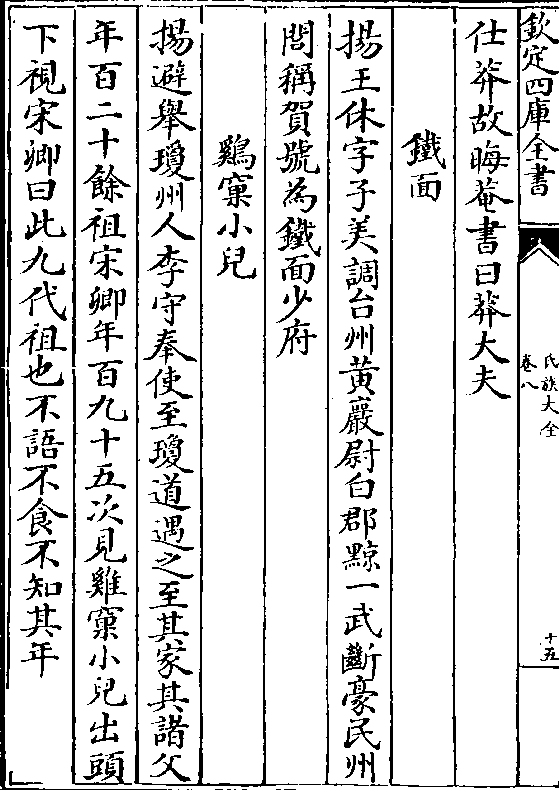 欽定四庫全書
氏族大全
卷八
十五
仕莽故晦菴書曰莽大夫
鐵面
揚王休字子美調台州黄巖尉白郡黥一武斷豪民州
閭稱賀號為鐵面少府
鷄窠小兒
揚避舉瓊州人李守奉使至瓊道遇之至其家其諸父
年百二十餘祖宋卿年百九十五次見雞窠小兒出頭
下視宋卿曰此九代祖也不語不食不知其年